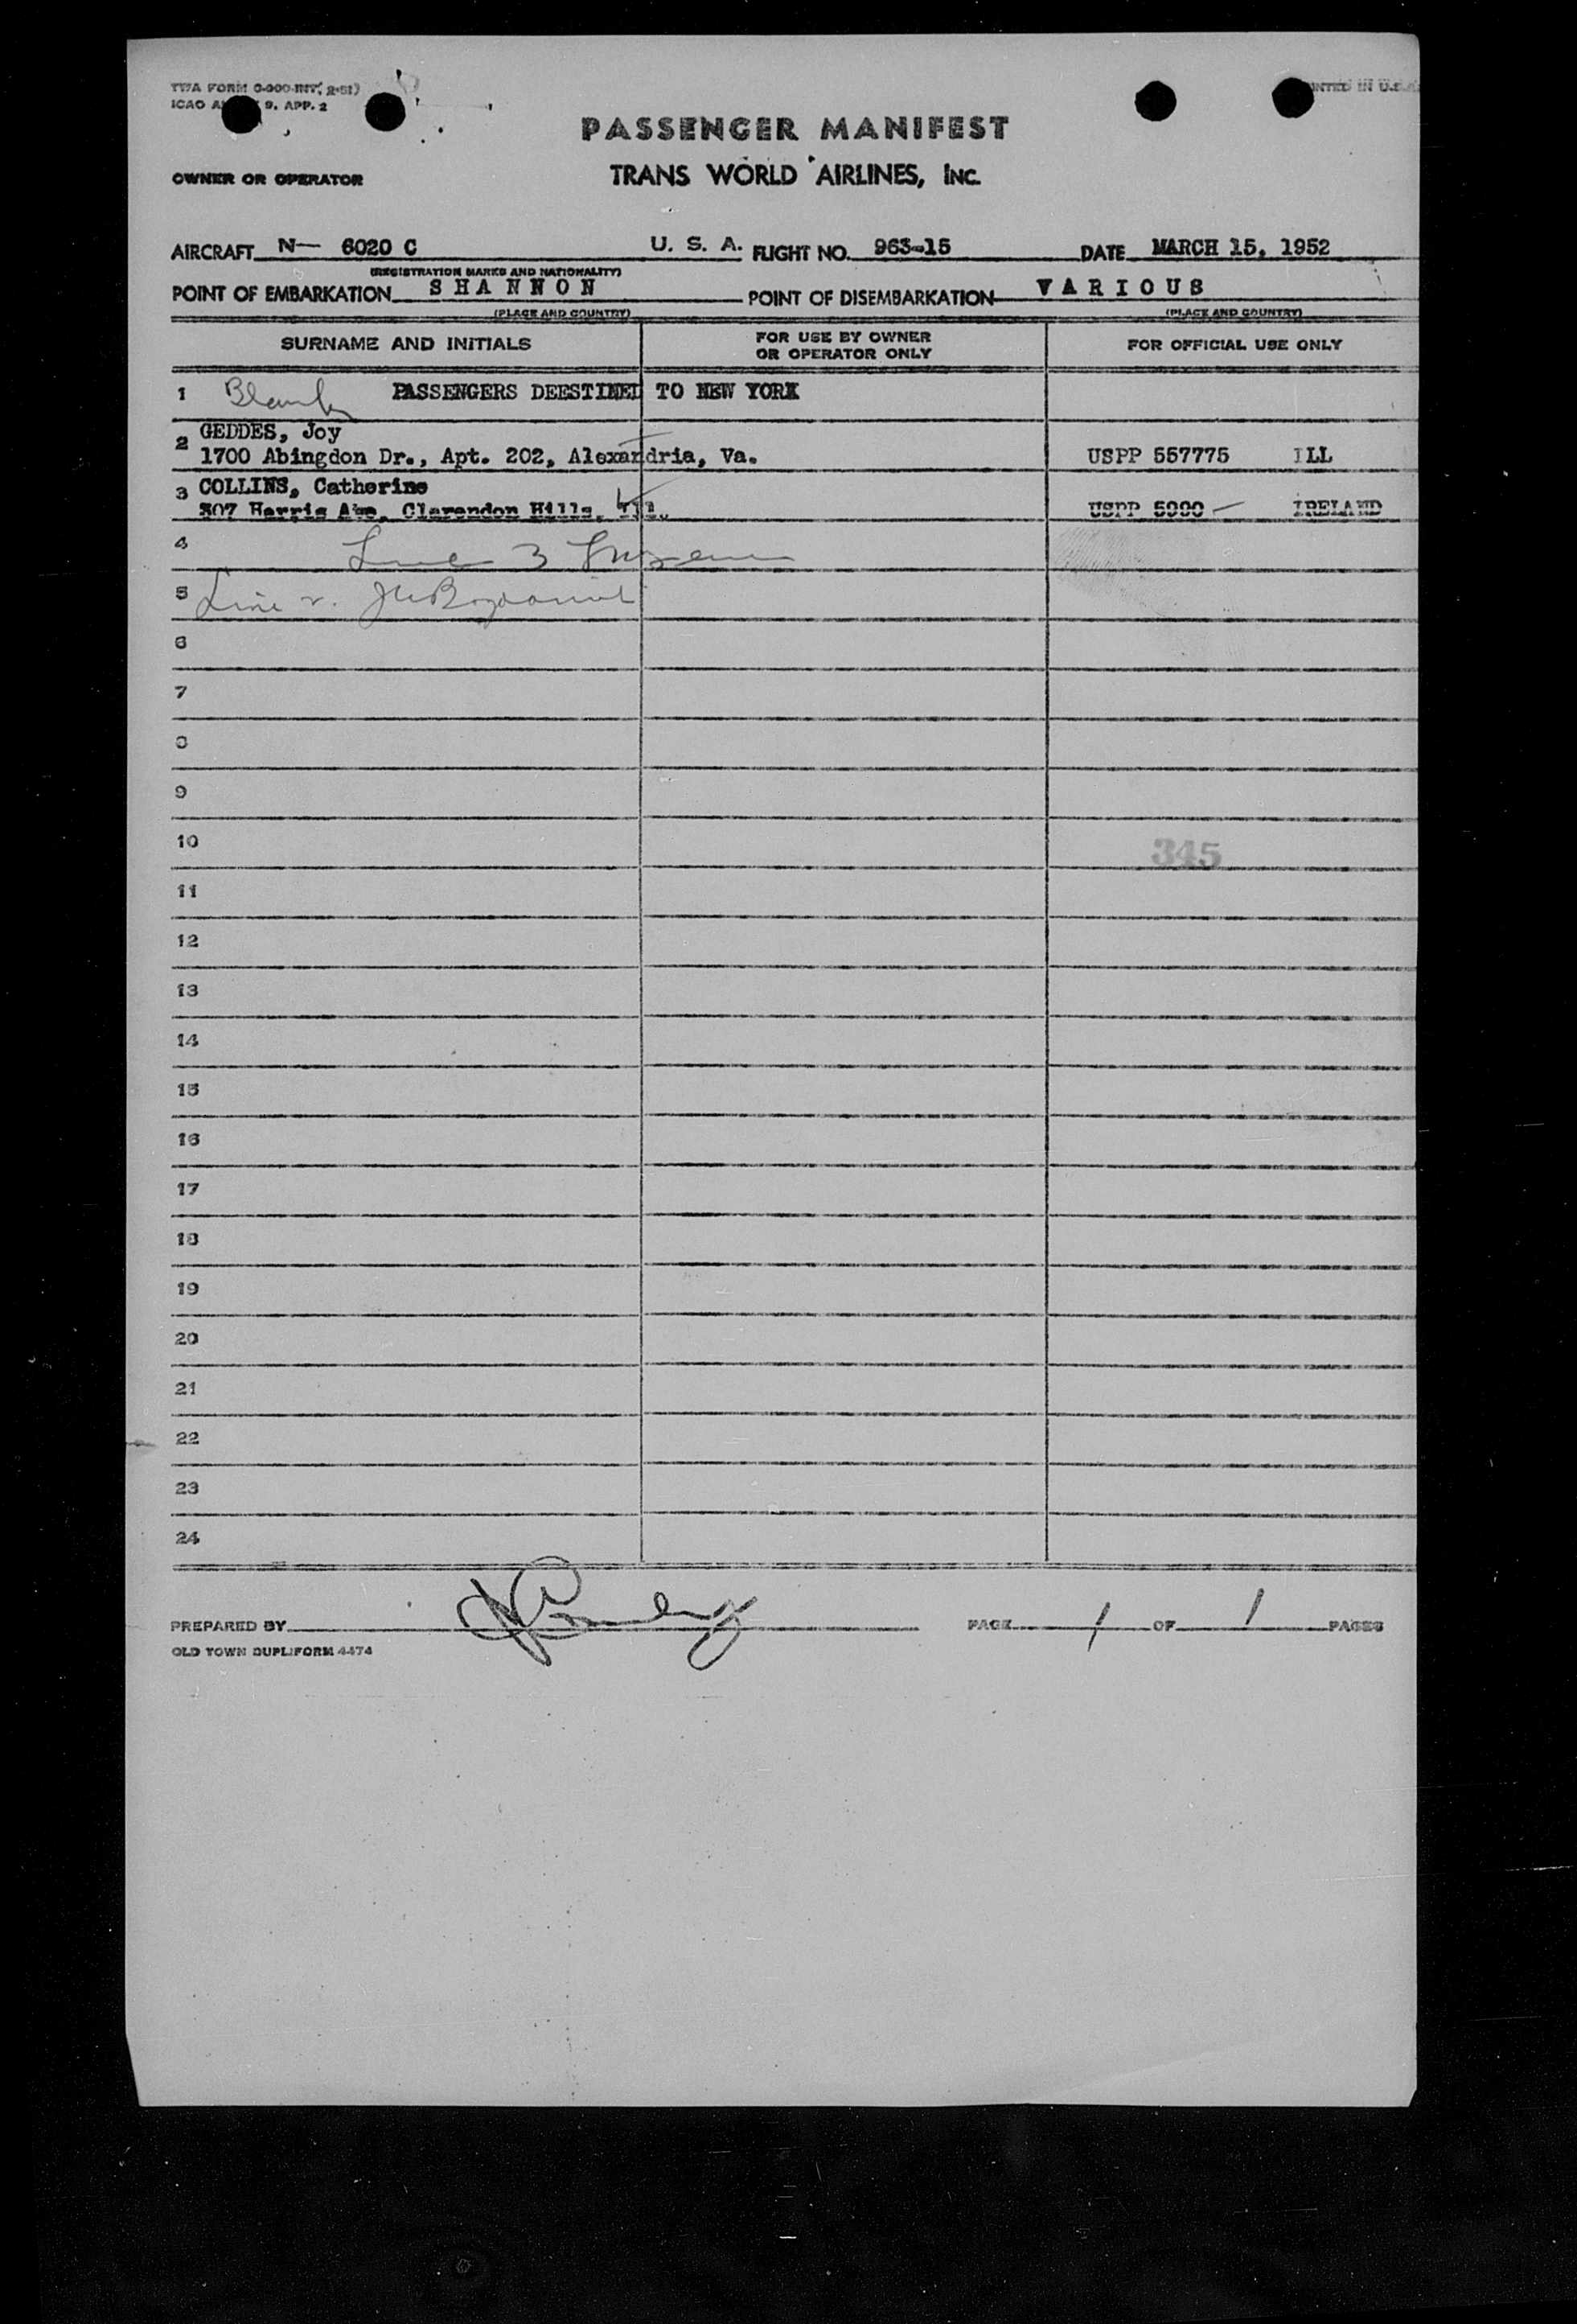 TWA FORM
ICAO 9. APP. 2
PASSENGER MANIFEST
OWNER OR OPERATOR
TRANS WORLD AIRLINES, INC.
AIRCRAFT N— 6020 C U. S. A. FLIGHT NO. 963-15 DATE MARCH 15, 1952
(REGISTRATION MARKS AND NATIONALITY)
POINT OF EMBARKATION SHANNON POINT OF DISEMBARKATION VARIOUS
(PLACE AND COUNTRY) (PLACE AND COUNTRY)
SURNAME AND INITIALS FOR USE BY OWNER OR OPERATOR ONLY FOR OFFICIAL USE ONLY
1 PASSENGERS DEESTINED TO NEW YORK
2 GEDDES, Joy
1700 Abingdon Dr., Apt. 202, Alexandria, Va. USPP 557775 ILL
3 COLLINS, Catherine
307 Harris Ave, Clarendon Hills, Ill. USPP IRELAND
4 Line 3
5 Line
6
7
8
9
10 345
11
12
13
14
15
16
17
18
19
20
21
22
23
24
PREPARED BY PAGE 1 OF 1 PAGES
OLD TOWN DUPLIFORM 4474